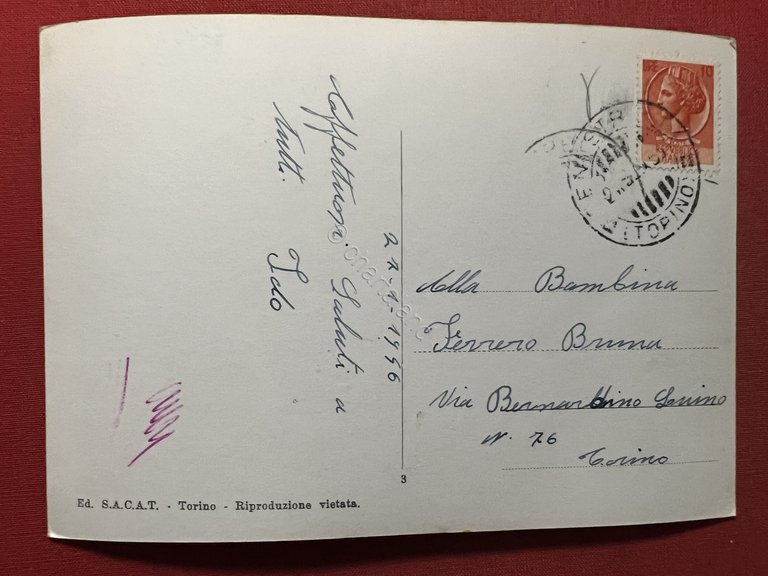 Affettuosi Saluti a
tutti.
Ido
27-1-1956
10
TORINO
Alla Bambina
Ferrero Bruna
Via Bernardino Luino
N. 76
Torino
3
Ed. S.A.C.A.T. - Torino - Riproduzione vietata.